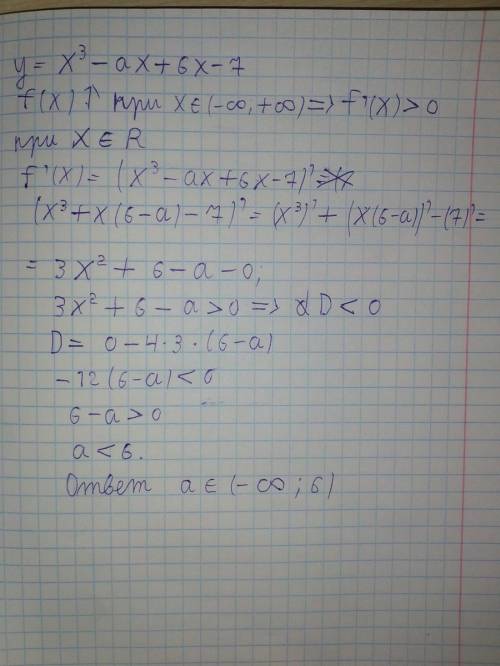 y = x³ - ax + 6x - 7
f(x) ↑ при x ∈ (-∞, +∞) => f'(x) > 0
при x ∈ R
f'(x) = (x³ - ax + 6x - 7)' =
(x³ + x(6-a) - 7)' = (x³)' + (x(6-a))' - (7)' =
= 3x² + 6 - a - 0;
3x² + 6 - a > 0 => D < 0
D = 0 - 4·3·(6-a)
-12(6-a) < 0
6-a > 0
a < 6.
Ответ a ∈ (-∞; 6)